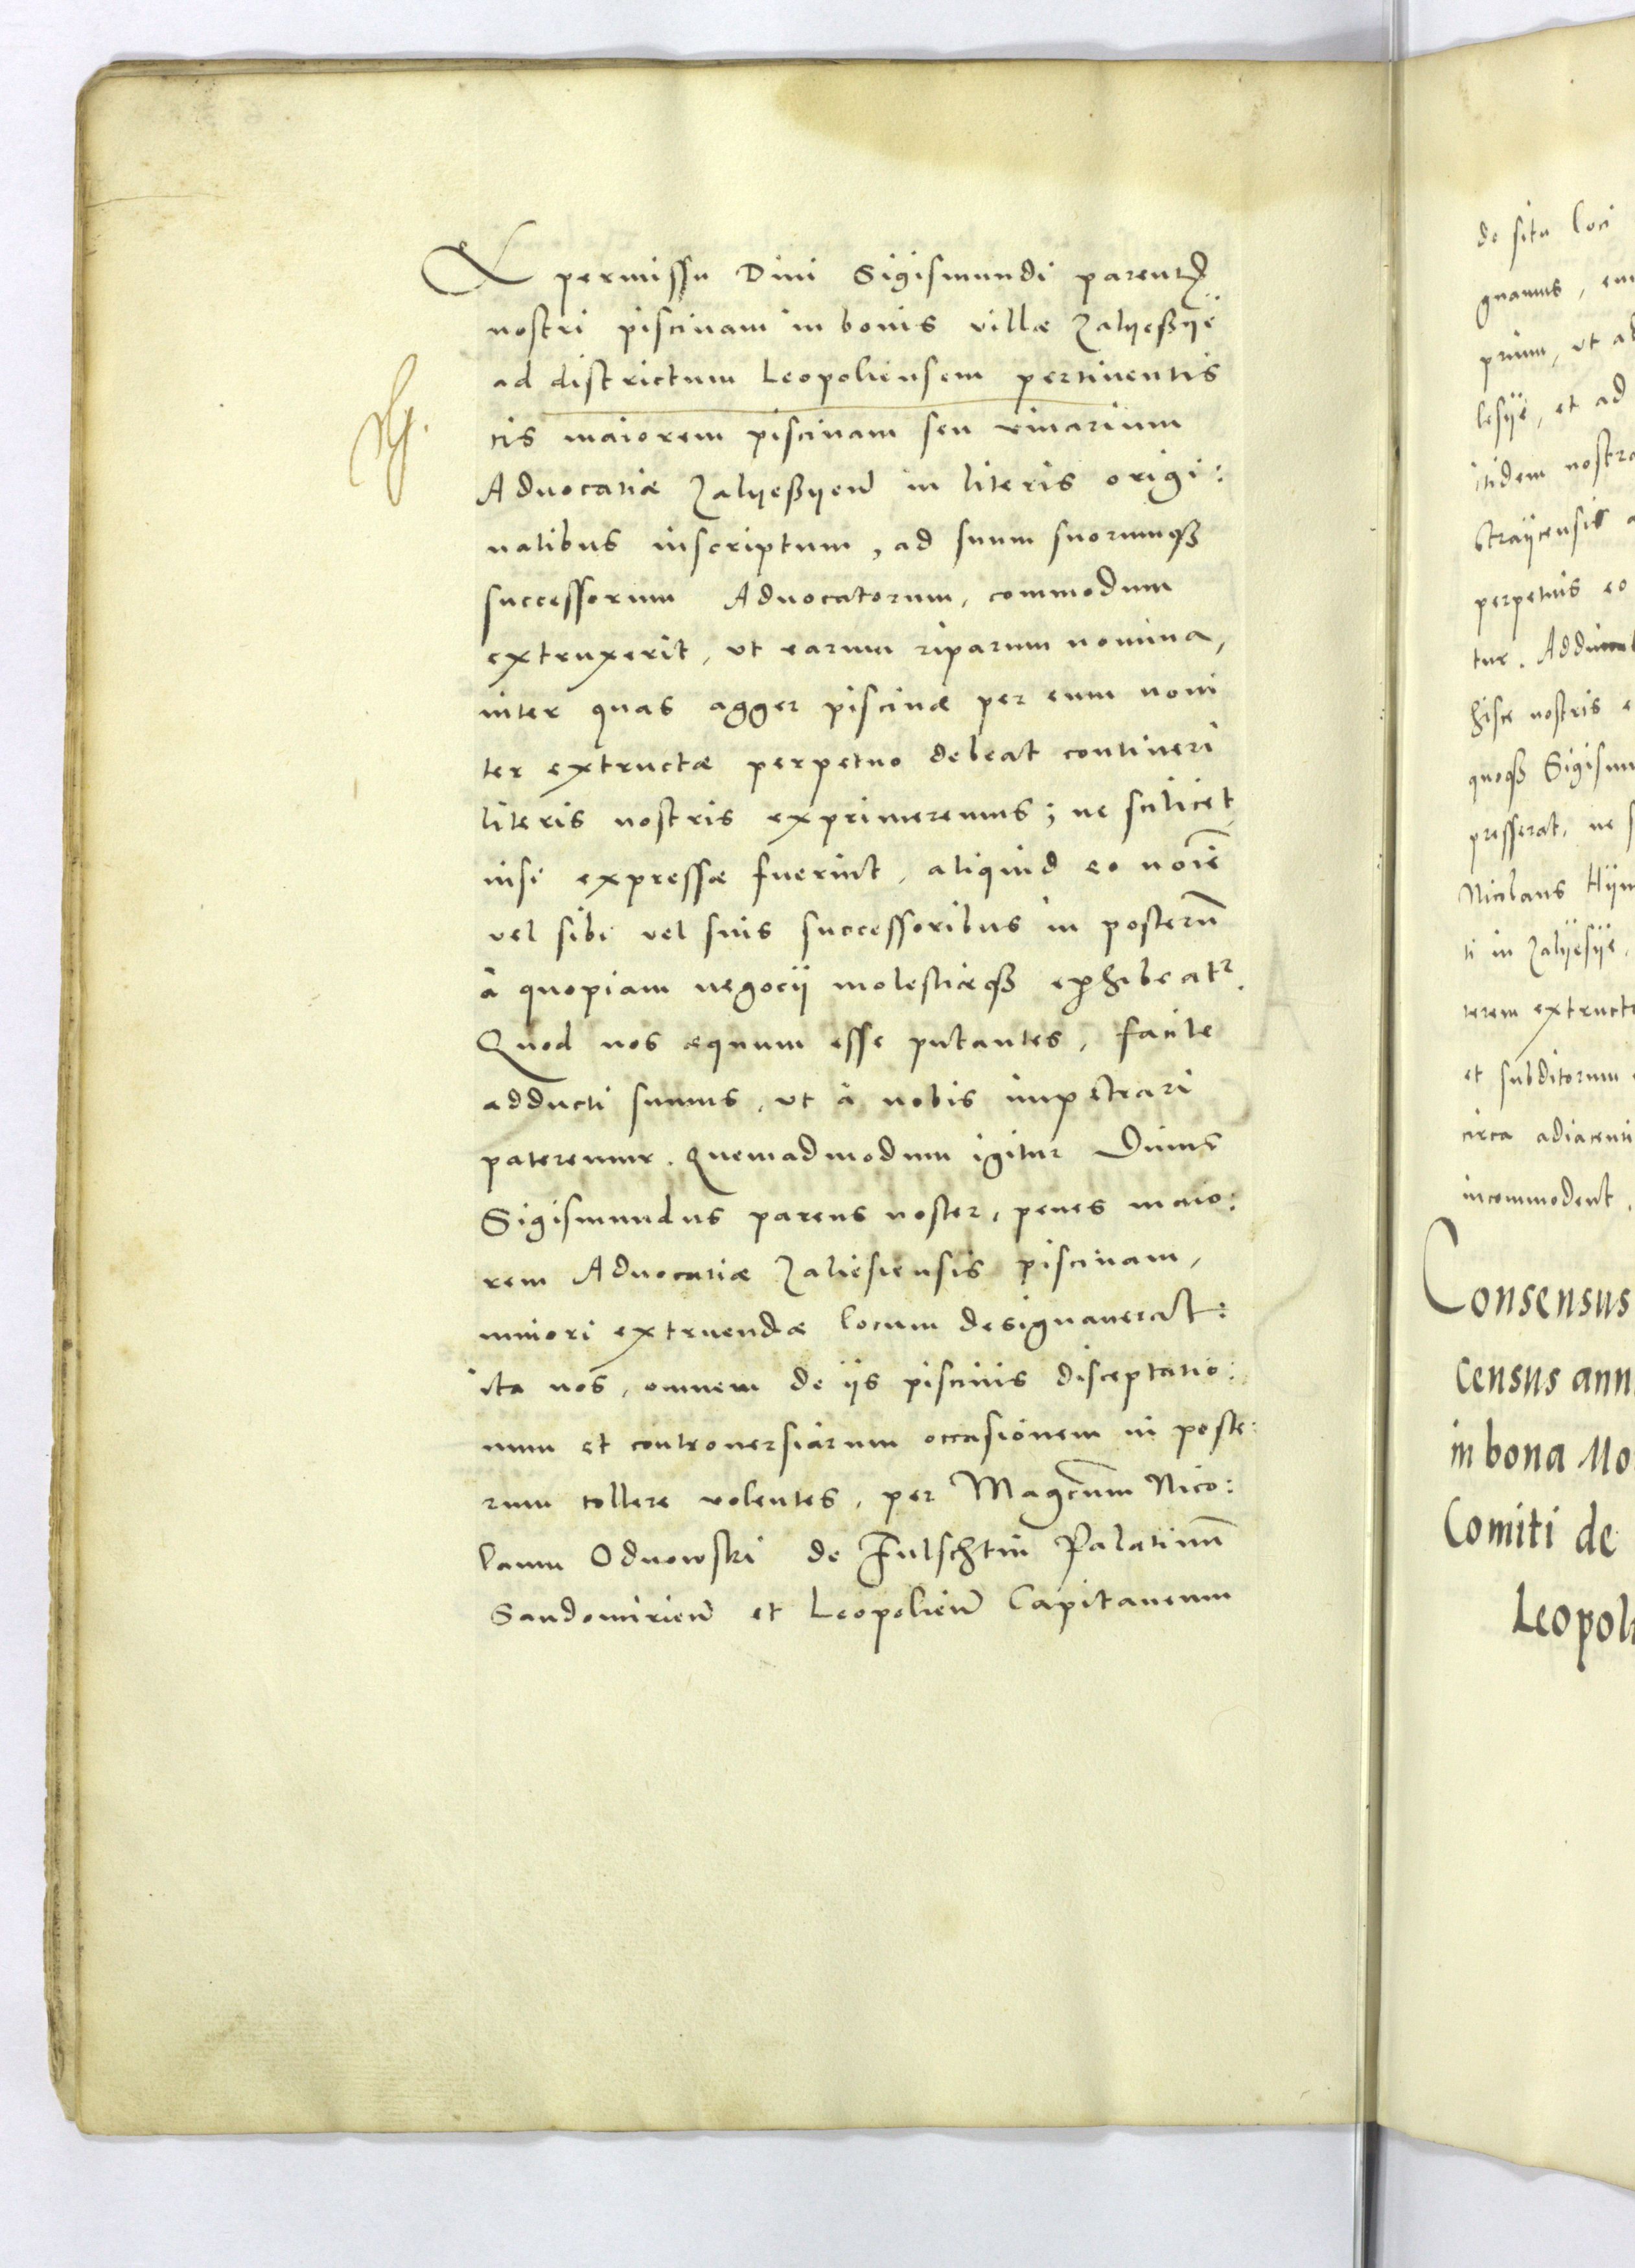 Ex permissu Divi Sigismundi parentis
nostri piscinam in bonis villæ Zalyeßye
ad districtum Leopoliensem pertinentis
cis maiorem piscinam seu vivarium
Advocatiæ Zalyeßyen in literis origi:
nalibus inscriptum, ad suum suorumq3
successorum Advocatorum, commodum
extruxerit, vt earum riparum nomina,
inter quas agger piscinæ per eum novi
ter extructæ perpetuo debeat contineri
literis nostris exprimeremus; ne scilicet,
nisi expressæ fuerint, aliquid eo noīe
vel sibi vel suis successoribus in posterū
à quopiam negocii molestiæq3 exhibeatr.
Quod nos æquum esse putantes, facile
adducti sumus, vt à nobis impetrari
pateremur. Quemadmodum igitur Divus
Sigismundus parens noster, penes maio:
rem Advocatiæ Zaliesiensis piscinam,
minori extruendæ locum designaverat:
ita nos, omnem de iis piscinis disceptatio:
num et controversiarum occasionem in poste:
rum tollere volentes, per Magcum Nico:
laum Odnowski de Fulschtin Palatinū
Sandomirien et Leopolien Capitaneum
de situ loci
gnamus,
prium, vt
lesye, et ad
itidem
perpetuis eo
tur.
hisce nostris
quoq3
presserat, ne
Nicolaus
ti in Zalyesye,
extruct
et subditorum
circa
incommodent.
Consensus
census ann
in bona Mo
Comiti de
Leopol